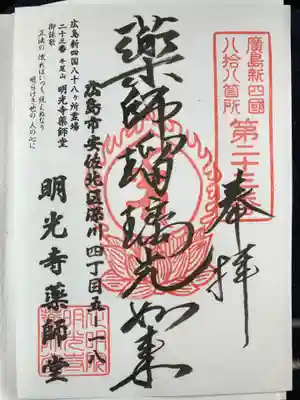 廣島新四國
八拾八箇所
第二十三番
奉拝
薬師瑠璃光如来
広島市安佐北区深川四丁目五-一八
広島新四国八十八ヶ所霊場
二十三番 牛尾山 明光寺薬師堂
御詠歌
正法の
人の心に
明光寺薬師堂